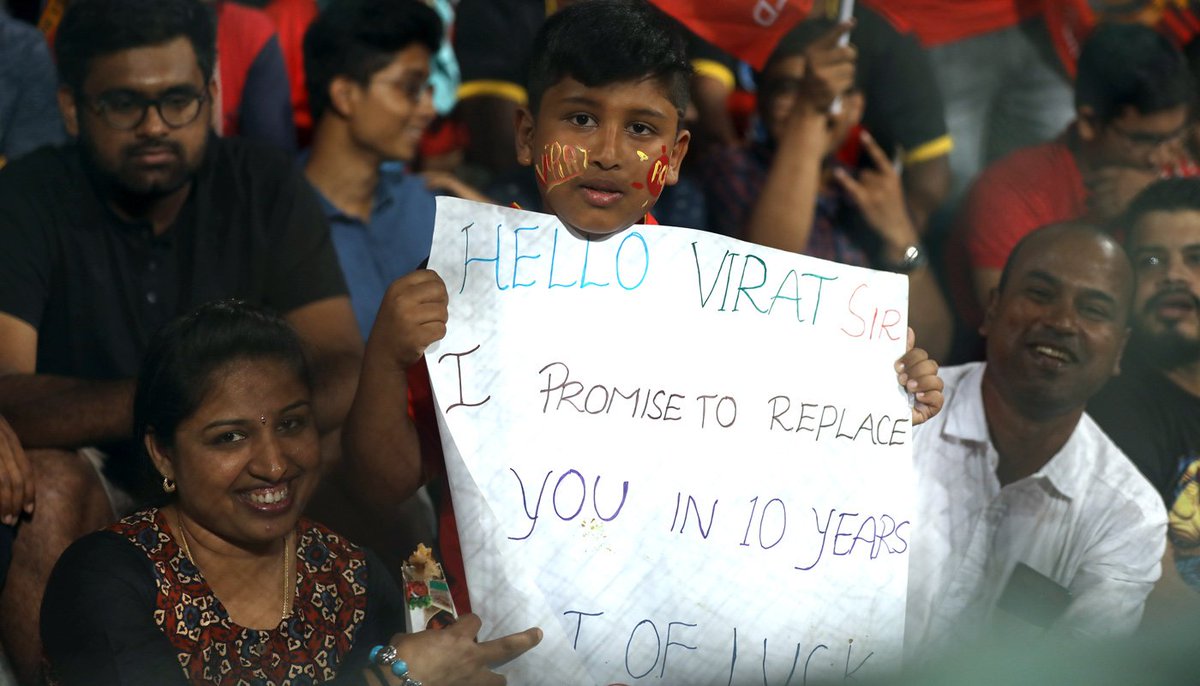 HELLO VIRAT SIR
I PROMISE TO REPLACE
YOU IN 10 YEARS
T OF LUCK